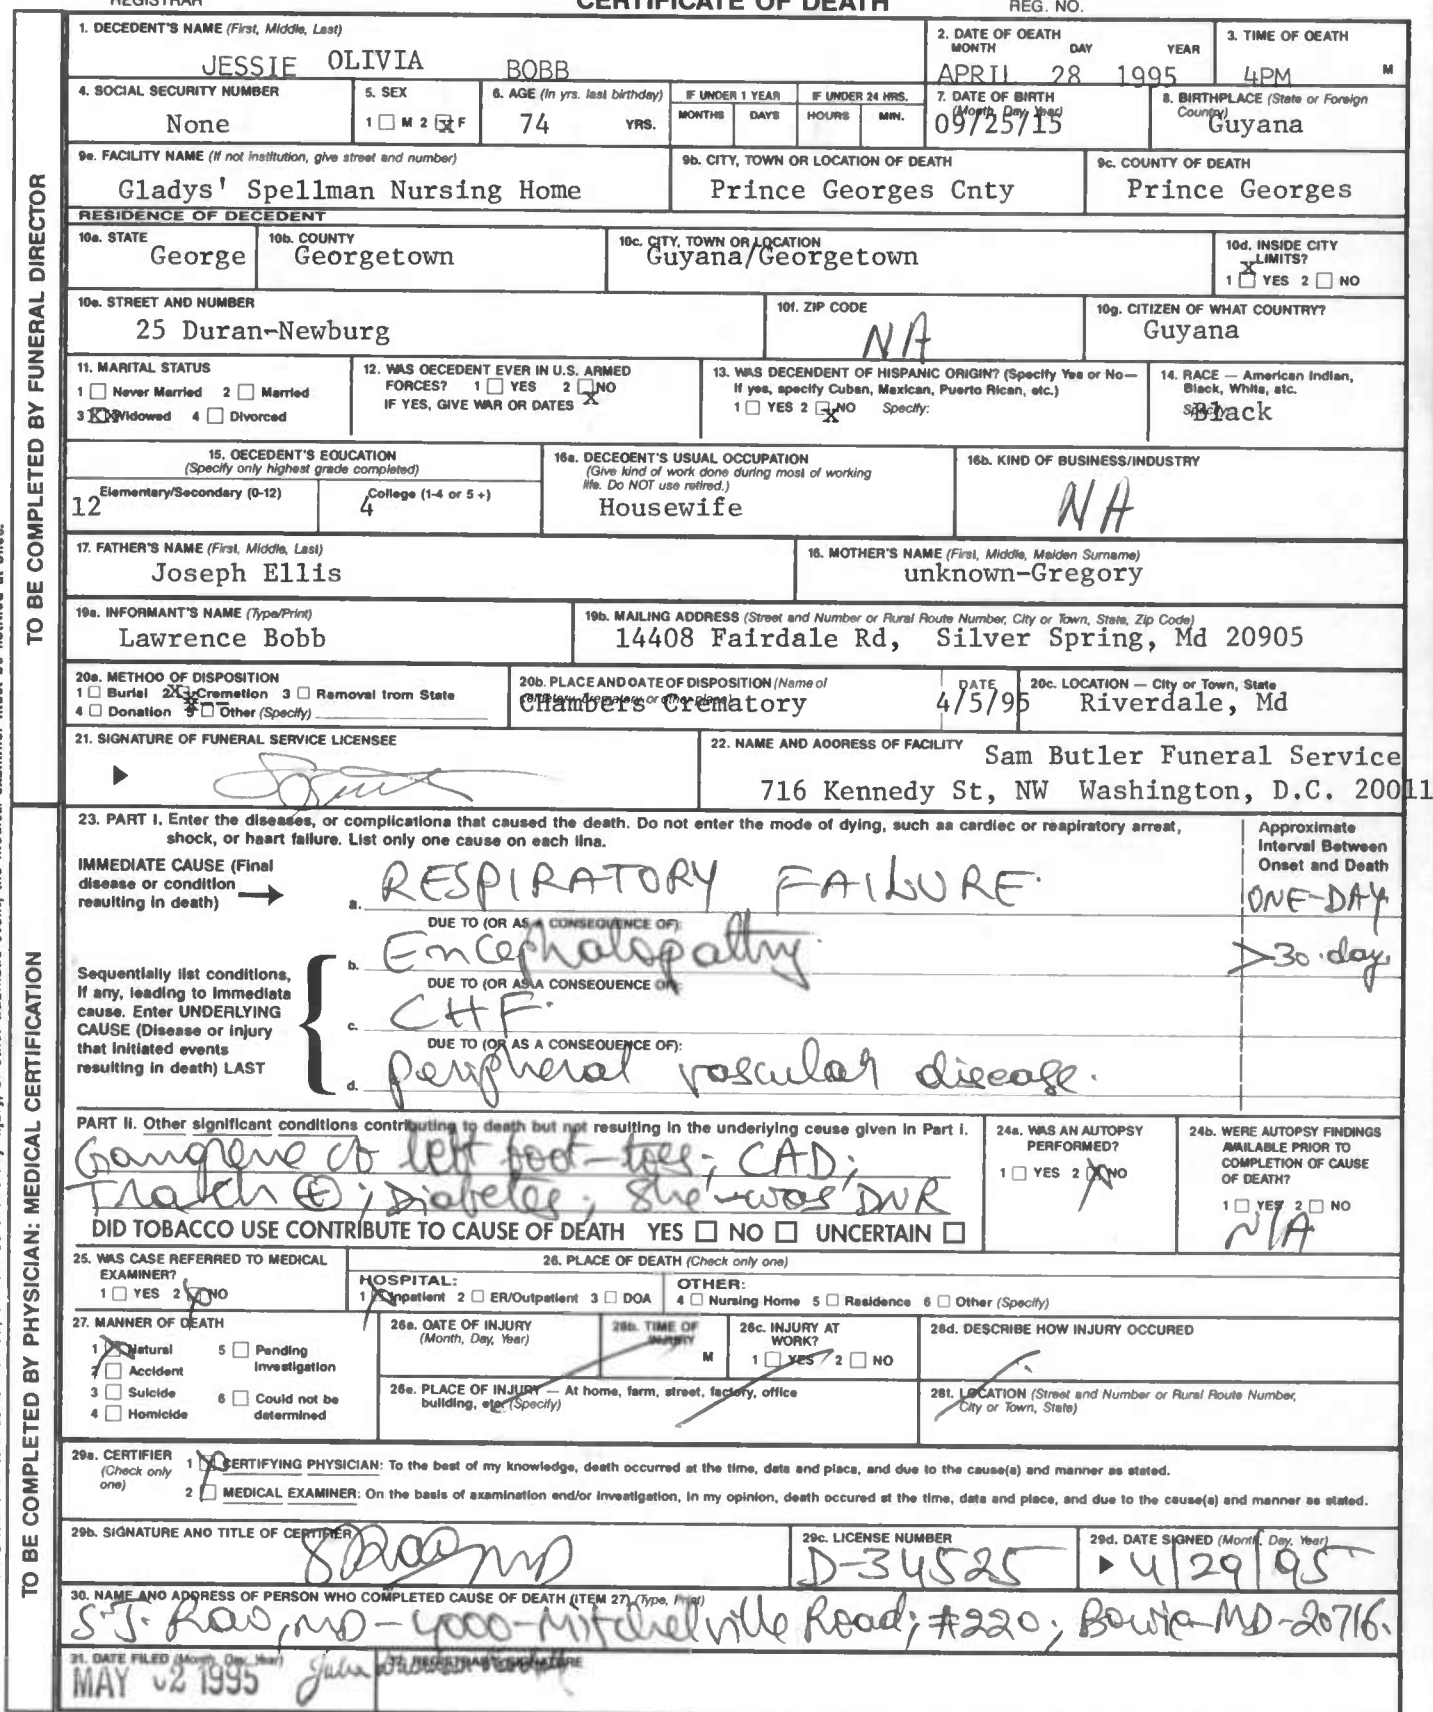 REGISTRAR CERTIFICATE OF DEATH REG. NO.
1. DECEDENT'S NAME (First, Middle, Last)
JESSIE OLIVIA BOBB
2. DATE OF DEATH
MONTH DAY YEAR
APRIL 28 1995
3. TIME OF DEATH
4PM M
4. SOCIAL SECURITY NUMBER
None
5. SEX
1 M 2 X F
6. AGE (In yrs. last birthday)
74 YRS.
IF UNDER 1 YEAR
MONTHS DAYS
IF UNDER 24 HRS.
HOURS MIN.
7. DATE OF BIRTH
(Month, Day, Year)
09/25/15
8. BIRTHPLACE (State or Foreign
Country)
Guyana
9a. FACILITY NAME (If not institution, give street and number)
Gladys' Spellman Nursing Home
9b. CITY, TOWN OR LOCATION OF DEATH
Prince Georges Cnty
9c. COUNTY OF DEATH
Prince Georges
RESIDENCE OF DECEDENT
10a. STATE
George
10b. COUNTY
Georgetown
10c. CITY, TOWN OR LOCATION
Guyana/Georgetown
10d. INSIDE CITY
LIMITS?
X
1 YES 2 NO
10e. STREET AND NUMBER
25 Duran-Newburg
10f. ZIP CODE
NA
10g. CITIZEN OF WHAT COUNTRY?
Guyana
11. MARITAL STATUS
1 Never Married 2 Married
3 XX Widowed 4 Divorced
12. WAS DECEDENT EVER IN U.S. ARMED
FORCES? 1 YES 2 NO
IF YES, GIVE WAR OR DATES X
13. WAS DECENDENT OF HISPANIC ORIGIN? (Specify Yes or No—
If yes, specify Cuban, Mexican, Puerto Rican, etc.)
1 YES 2 X NO Specify:
14. RACE — American Indian,
Black, White, etc.
Specify:
Black
15. DECEDENT'S EDUCATION
(Specify only highest grade completed)
Elementary/Secondary (0-12)
12
College (1-4 or 5+)
4
16a. DECEDENT'S USUAL OCCUPATION
(Give kind of work done during most of working
life. Do NOT use retired.)
Housewife
16b. KIND OF BUSINESS/INDUSTRY
NA
17. FATHER'S NAME (First, Middle, Last)
Joseph Ellis
18. MOTHER'S NAME (First, Middle, Maiden Surname)
unknown-Gregory
19a. INFORMANT'S NAME (Type/Print)
Lawrence Bobb
19b. MAILING ADDRESS (Street and Number or Rural Route Number, City or Town, State, Zip Code)
14408 Fairdale Rd, Silver Spring, Md 20905
20a. METHOD OF DISPOSITION
1 Burial 2 X Cremation 3 Removal from State
4 Donation 5 Other (Specify)
20b. PLACE AND DATE OF DISPOSITION (Name of
cemetery, crematory or other place)
Chambers Crematory
DATE
4/5/95
20c. LOCATION — City or Town, State
Riverdale, Md
21. SIGNATURE OF FUNERAL SERVICE LICENSEE
22. NAME AND ADDRESS OF FACILITY Sam Butler Funeral Service
716 Kennedy St, NW Washington, D.C. 20011
TO BE COMPLETED BY FUNERAL DIRECTOR
23. PART I. Enter the diseases, or complications that caused the death. Do not enter the mode of dying, such as cardiac or respiratory arrest,
shock, or heart failure. List only one cause on each line.
Approximate
Interval Between
Onset and Death
IMMEDIATE CAUSE (Final
disease or condition
resulting in death)
a. RESPIRATORY FAILURE. ONE-DAY
DUE TO (OR AS A CONSEQUENCE OF):
b. Encephalopathy. >30.day.
Sequentially list conditions,
If any, leading to immediate
cause. Enter UNDERLYING
CAUSE (Disease or injury
that initiated events
resulting in death) LAST
DUE TO (OR AS A CONSEQUENCE OF):
c. CHF.
DUE TO (OR AS A CONSEQUENCE OF):
d. peripheral vascular disease.
PART II. Other significant conditions contributing to death but not resulting in the underlying cause given in Part I.
Gangrene of left foot-toes; CAD;
Trach +; Diabetes; She was DNR
DID TOBACCO USE CONTRIBUTE TO CAUSE OF DEATH YES NO UNCERTAIN
24a. WAS AN AUTOPSY
PERFORMED?
1 YES 2 X NO
24b. WERE AUTOPSY FINDINGS
AVAILABLE PRIOR TO
COMPLETION OF CAUSE
OF DEATH?
1 YES 2 NO
N/A
25. WAS CASE REFERRED TO MEDICAL
EXAMINER?
1 YES 2 X NO
26. PLACE OF DEATH (Check only one)
HOSPITAL:
1 X Inpatient 2 ER/Outpatient 3 DOA
OTHER:
4 Nursing Home 5 Residence 6 Other (Specify)
27. MANNER OF DEATH
1 X Natural 5 Pending
Investigation
2 Accident
3 Suicide 6 Could not be
determined
4 Homicide
28a. DATE OF INJURY
(Month, Day, Year)
28b. TIME OF
INJURY
M
28c. INJURY AT
WORK?
1 YES 2 NO
28d. DESCRIBE HOW INJURY OCCURED
28e. PLACE OF INJURY — At home, farm, street, factory, office
building, etc. (Specify)
28f. LOCATION (Street and Number or Rural Route Number,
City or Town, State)
29a. CERTIFIER
(Check only
one)
1 X CERTIFYING PHYSICIAN: To the best of my knowledge, death occurred at the time, date and place, and due to the cause(s) and manner as stated.
2 MEDICAL EXAMINER: On the basis of examination and/or investigation, in my opinion, death occured at the time, date and place, and due to the cause(s) and manner as stated.
29b. SIGNATURE AND TITLE OF CERTIFIER
MD
29c. LICENSE NUMBER
D-34525
29d. DATE SIGNED (Month, Day, Year)
4/29/95
30. NAME AND ADDRESS OF PERSON WHO COMPLETED CAUSE OF DEATH (ITEM 27) (Type, Print)
S.J. Rao, MD-4000-Mitchelville Road; #220; Bowie-MD-20716.
31. DATE FILED (Month, Day, Year)
MAY 02 1995
32. REGISTRAR'S SIGNATURE
Julia
TO BE COMPLETED BY PHYSICIAN: MEDICAL CERTIFICATION